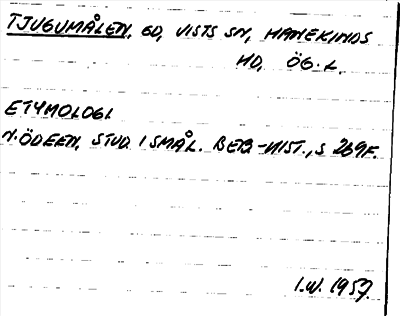 TJUGUMÅLEN, GD, VISTS SN, HANEKINDS
HD, ÖG. L.
ETYMOLOGI
N. ÖDEEN, STUD. I SMÅL. BEB-HIST., S 269 F.
I.W. 1957.